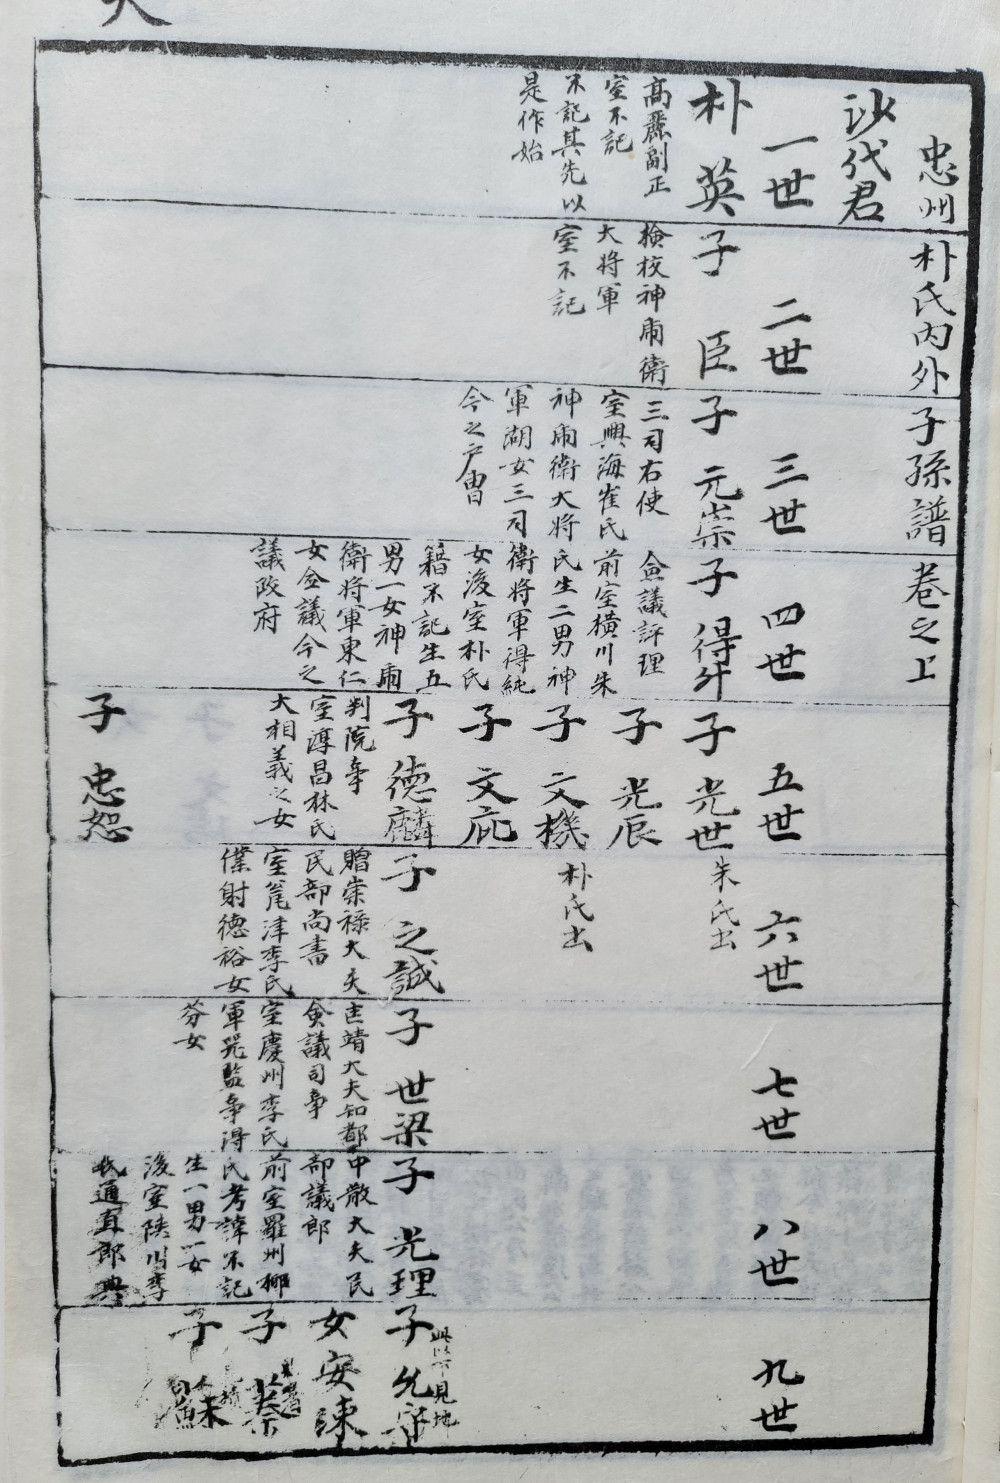 忠州朴氏內外子孫譜卷之上
沙代君
一世
朴英
高麗副正
室不記
不記其先以
是作始
二世
子臣
檢校神甫衛
大將軍
室不記
三世
子元崇
三司右使
室興海崔氏
神甫衛大將
軍湖女三司
今之戶曹
四世
子得升
僉議評理
前室橫川朱
氏生二男神
衛將軍得純
女後室朴氏
籍不記生五
男一女神甫
衛將軍東仁
女僉議今之
議政府
五世
子光世
子光辰
子文機
子文庇
子德麟
判院事
室淳昌林氏
大相義之女
子忠恕
六世
朱氏出
朴氏出
子之誠
贈崇祿大夫
民部尚書
室瓮津李氏
僕射德裕女
七世
子世梁
匡靖大夫知都
僉議司事
室慶州李氏
軍器監事得
芬女
八世
子光理
中散大夫民
部議郎
前室羅州柳
氏考諱不記
生一男一女
後室陜川李
氏通直郎興
九世
子允
此以下見地
女安陳
子蔡
子蘇